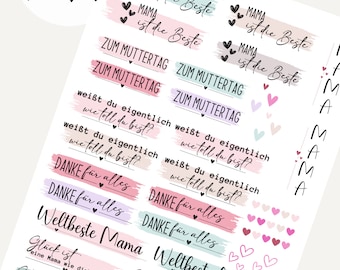 MAMA
ist die Beste
MAMA
ist die Beste
MAMA
ist die Beste
ZUM MUTTERTAG
ZUM MUTTERTAG
ZUM MUTTERTAG
ZUM MUTTERTAG
weißt du eigentlich
wie toll du bist?
weißt du eigentlich
wie toll du bist?
weißt du eigentlich
wie toll du bist?
weißt du eigentlich
wie toll du bist?
DANKE für alles
DANKE für alles
DANKE für alles
DANKE für alles
Weltbeste Mama
Weltbeste
Glück ist
eine Mama wie
Glück ist
M
A
M
A
M
A